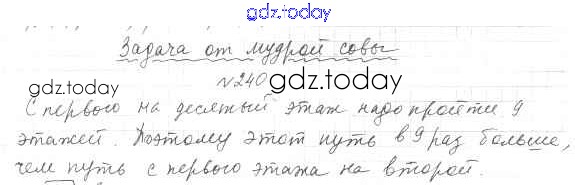 gdz.today
Задача от мудрой совы
gdz.today №240 gdz.today
С первого на десятый этаж надо пройти 9
этажей. Поэтому этот путь в 9 раз больше,
чем путь с первого этажа на второй.